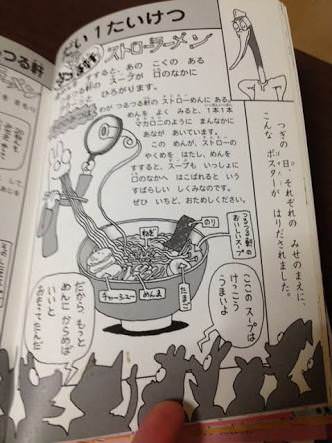 だい１たいけつ
ストローラーメン
すすると、あの こくの ある
スープが 日のなかに
ひろがります。
わが つるつる軒の ストローめんに ある。
めんを よく みると、1本1本
マカロニのように まんなかに
あなが あいています。
この めんが、ストローの
やくめを はたし、めんを
すすると、スープも いっしょに
口のなかへ はこばれると いう
すばらしい しくみなのです。
ぜひ いちど、おためしください。
つぎの 日、それぞれの みせのまえに、
こんな ポスターが はりだされました。
つるつる軒の
おいしいスープ
のり
ねぎ
チャーシュー
めんま
たまご
ここの スープは
けっこう
うまいよ
だから もっと
めんに からめば
いいと
つる軒